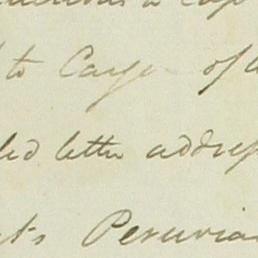 a Cap
to Cargo of
led letter addres
t's Peruvian